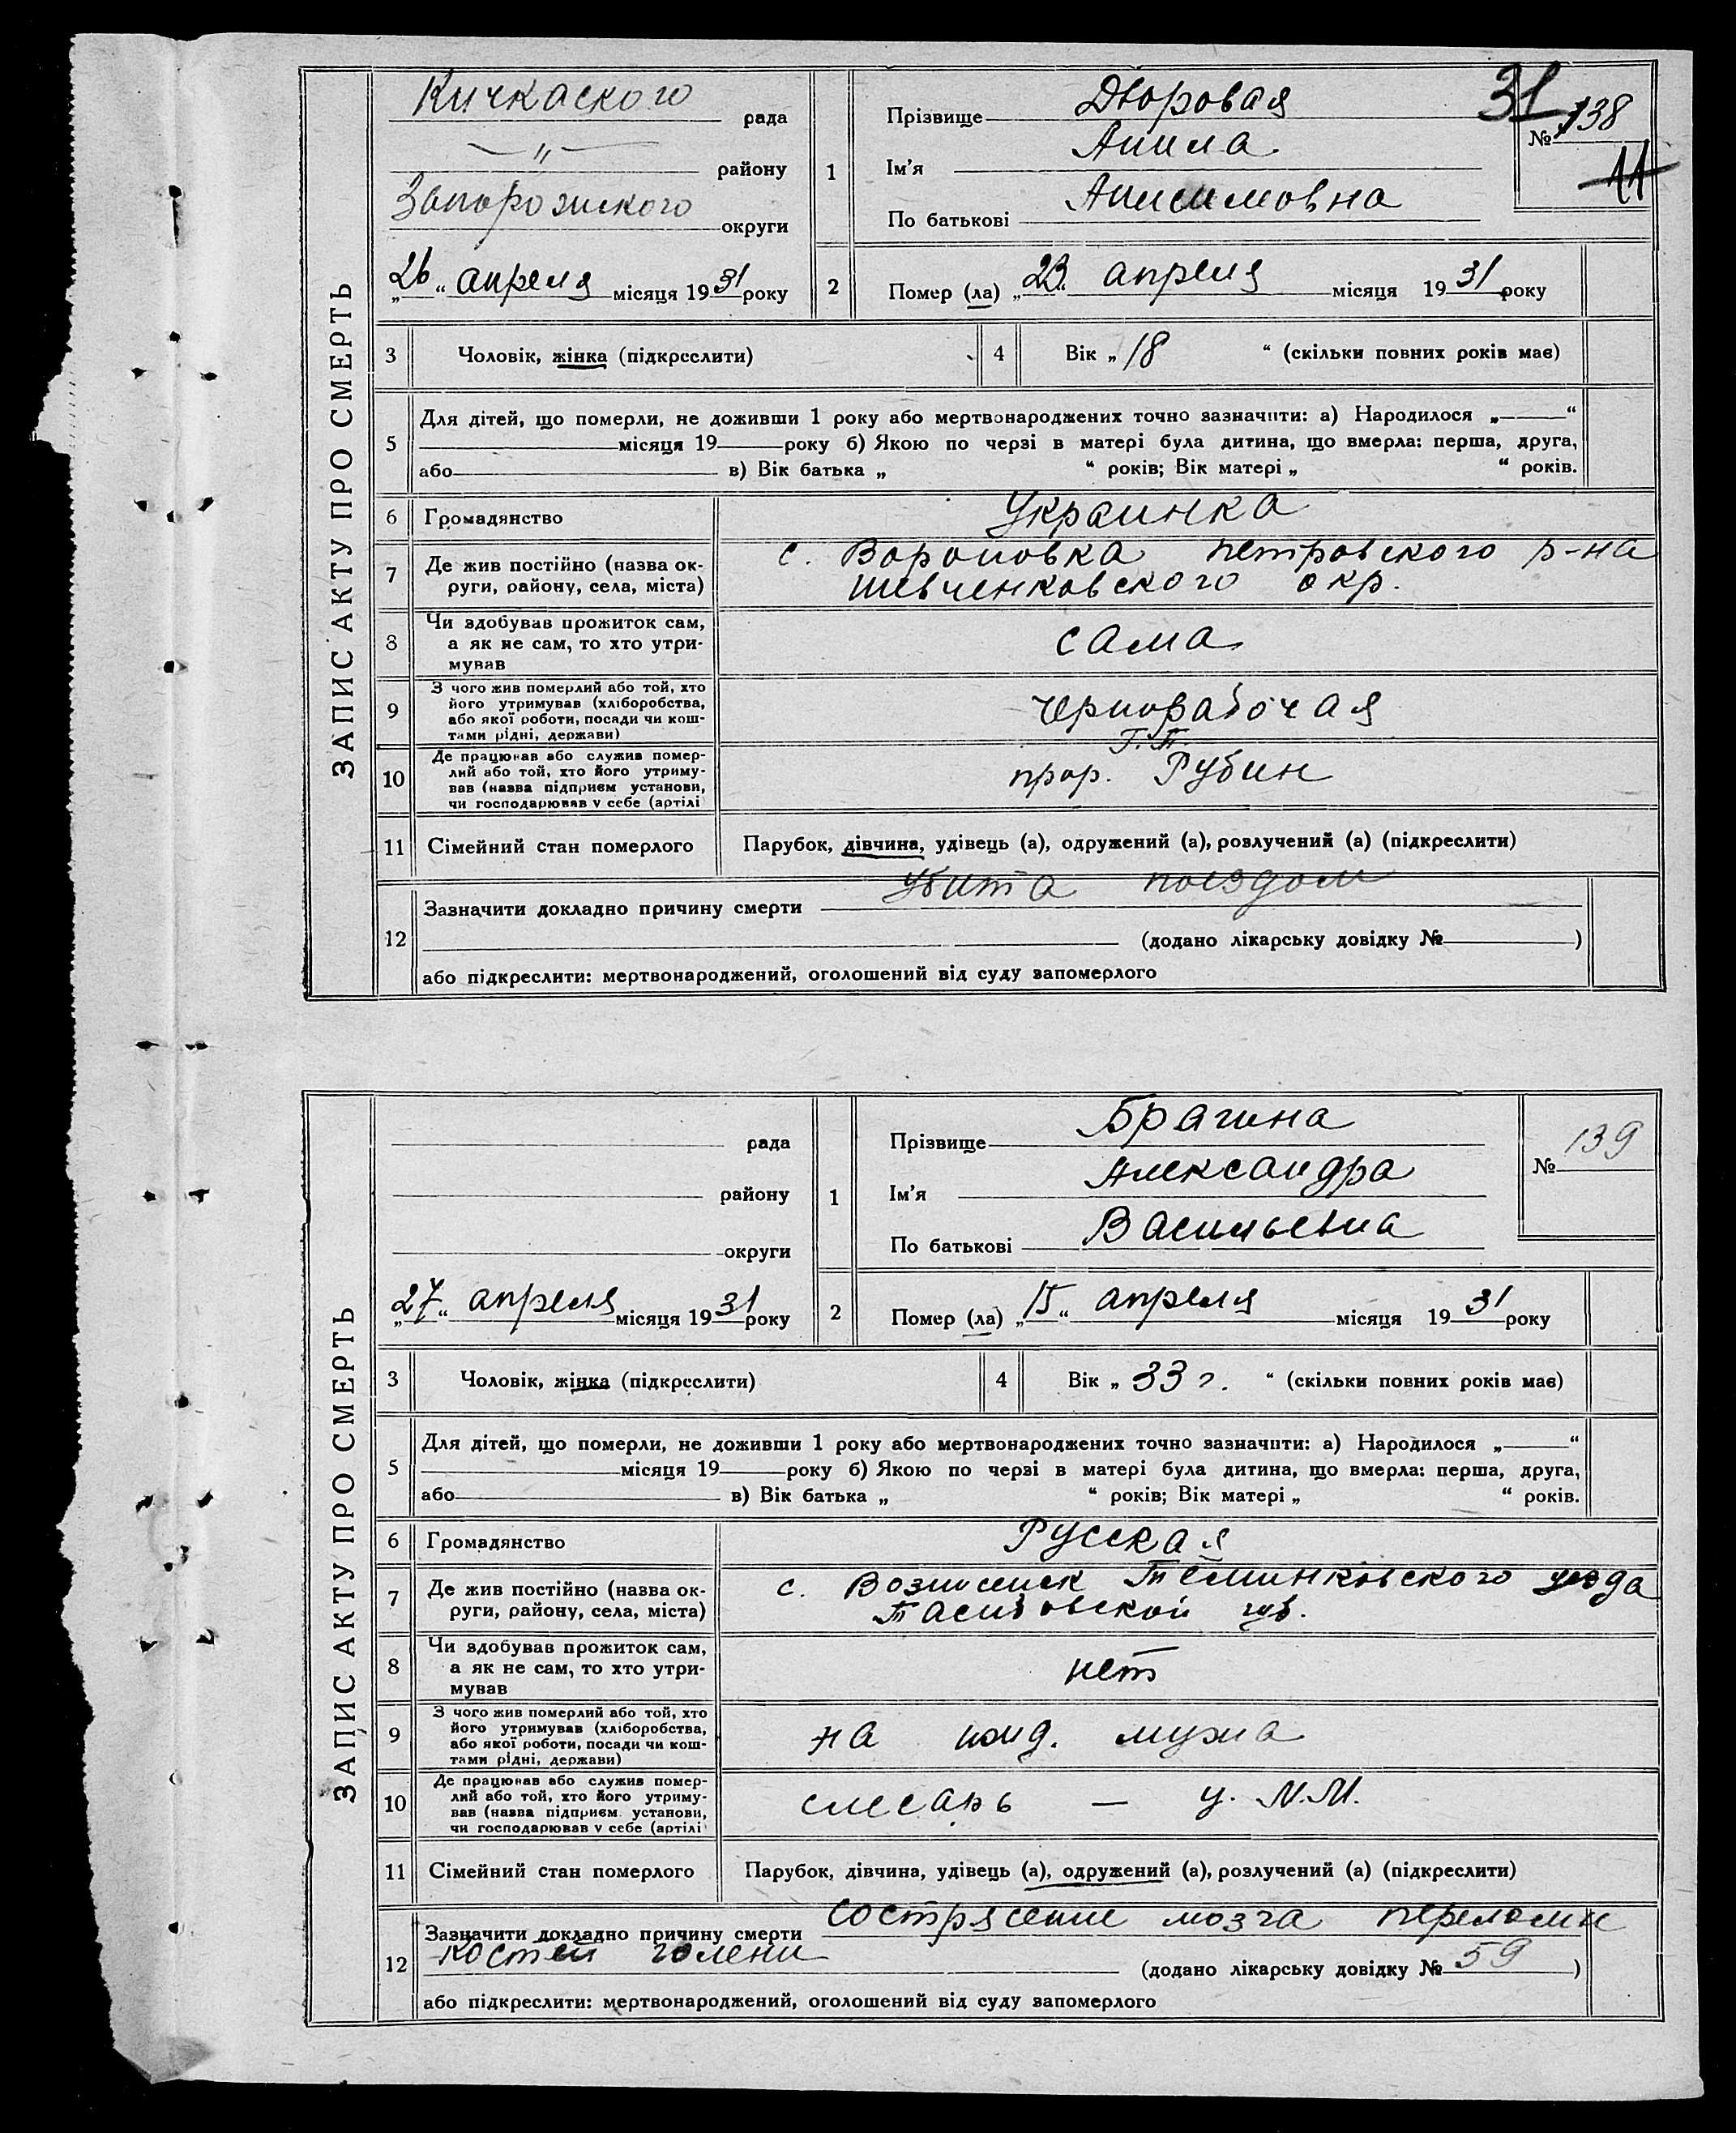 ЗАПИС АКТУ ПРО СМЕРТЬ
Кичкаского рада
—〃— району
Запорожского округи
„26“ апреля місяця 1931 року
1
Прізвище Дворовая
Ім'я
По батькові Анисимовна
31
№ 138
11
2 Помер (ла) „23“ апреля місяця 1931 року
3 Чоловік, жінка (підкреслити)
4 Вік „18 “ (скільки повних років має)
5 Для дітей, що померли, не доживши 1 року або мертвонароджених точно зазначити: а) Народилося „ “
місяця 19 року б) Якою по черзі в матері була дитина, що вмерла: перша, друга,
або в) Вік батька „ “ років; Вік матері „ “ років.
6 Громадянство Украинка
7 Де жив постійно (назва ок-
руги, району, села, міста)
с. Вороновка Петровского р-на
Шевченковского окр.
8 Чи здобував прожиток сам,
а як не сам, то хто утри-
мував
сама
9 З чого жив померлий або той, хто
його утримував (хліборобства,
або якої роботи, посади чи кош-
тами рідні, держави)
чернорабочая
10 Де працював або служив помер-
лий або той, хто його утриму-
вав (назва підприєм установи,
чи господарював у себе (артілі
Г.П.
прор. Рубин
11 Сімейний стан померлого Парубок, дівчина, удівець (а), одружений (а), розлучений (а) (підкреслити)
12 Зазначити докладно причину смерти убита поездом
(додано лікарську довідку № )
або підкреслити: мертвонароджений, оголошений від суду запомерлого
ЗАПИС АКТУ ПРО СМЕРТЬ
рада
району
округи
„27“ апреля місяця 1931 року
1
Прізвище Брагина
Ім'я Александра
По батькові Васильевна
№ 139
2 Помер (ла) „15“ апреля місяця 1931 року
3 Чоловік, жінка (підкреслити)
4 Вік „33 г. “ (скільки повних років має)
5 Для дітей, що померли, не доживши 1 року або мертвонароджених точно зазначити: а) Народилося „ “
місяця 19 року б) Якою по черзі в матері була дитина, що вмерла: перша, друга,
або в) Вік батька „ “ років; Вік матері „ “ років.
6 Громадянство Русская
7 Де жив постійно (назва ок-
руги, району, села, міста)
с. уезда
губ.
8 Чи здобував прожиток сам,
а як не сам, то хто утри-
мував
нет
9 З чого жив померлий або той, хто
його утримував (хліборобства,
або якої роботи, посади чи кош-
тами рідні, держави)
на ижд. мужа
10 Де працював або служив помер-
лий або той, хто його утриму-
вав (назва підприєм. установи,
чи господарював у себе (артілі
слесарь —
11 Сімейний стан померлого Парубок, дівчина, удівець (а), одружений (а), розлучений (а) (підкреслити)
12 Зазначити докладно причину смерти сострясение мозга переломи
костей голени (додано лікарську довідку № 59 )
або підкреслити: мертвонароджений, оголошений від суду запомерлого